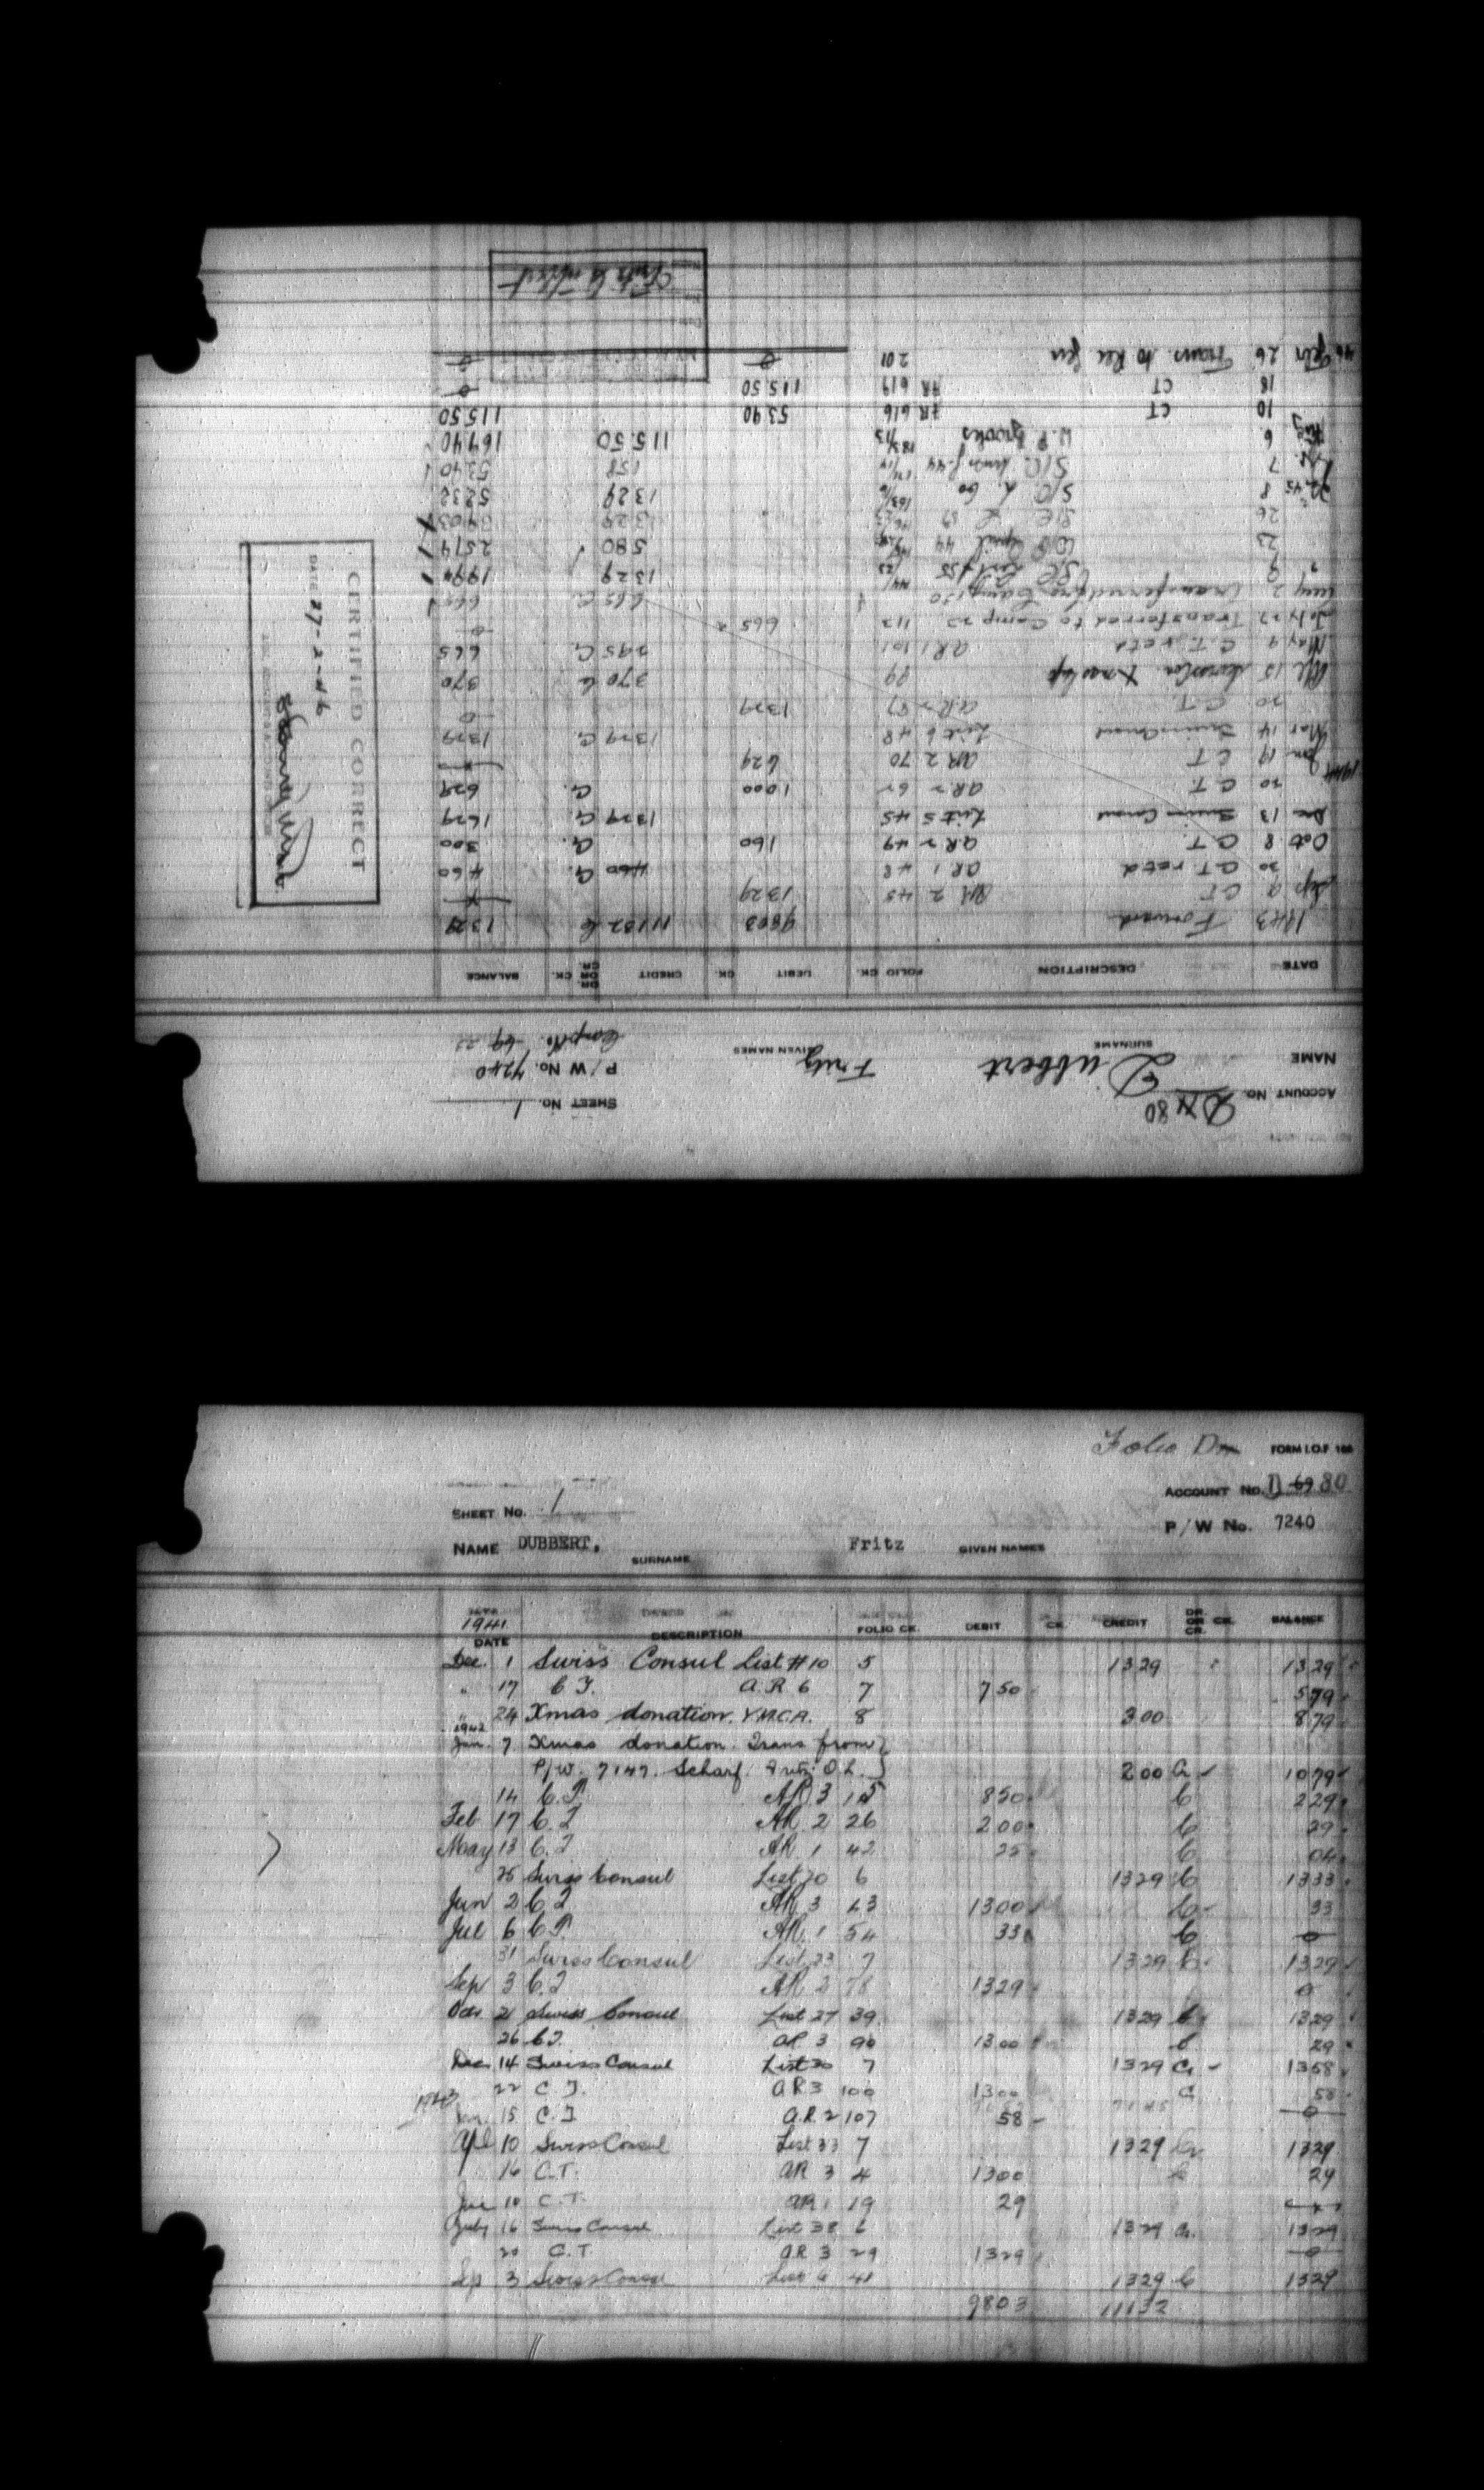 ACCOUNT No. 80
NAME Dubbert Fritz
SURNAME GIVEN NAMES
SHEET No. 1
P/W No. 7240
Camp No. 69 22
DATE DESCRIPTION FOLIO CK. DEBIT CK. CREDIT DR. OR CR. CK. BALANCE
1943 Forward 9803 11132 C 1329
Sep 9 CT AR 2 45 1329
30 CT retd AR 1 48 460 C. 460
Oct 8 C T. AR 2 49 160 C. 300
Dec 13 Swiss Consul List 5 45 1329 C. 1629
20 C T. AR 2 62 1000 C. 629
1944
Jan 19 C T AR 2 70 629
Mar 14 Swiss Consul List 6 48 1329 C. 1329
20 C T. AR 2 87 1329 0
Apl 15 99 370 C 370
May 9 C.T. retd AR 1 101 295 C. 665
July 27 Transferred to Camp 22 112 665 0
Aug 2 Transferred fro Camp 130 665 C. 665
" 9 S/C List 55 1329 1994
23 April 44 580 2574
26 S/C L 57 1329 3903
8 S/C L 60 103/6 1329 5232
7 S/C 158 5390
Aug 6 W.P. Books 183/13 115.50 16940
10 CT AR 616 5390 11550
18 CT AR 619 11550 0
46 Feb 26 Trans to Rec Gen 201 0 0
Fritz Dubbert
CERTIFIED CORRECT
DATE 27-2-46
Folio D
FORM I.O.F 166
ACCOUNT No. D 69 80
SHEET No. 1
P/W No. 7240
NAME DUBBERT, Fritz GIVEN NAMES
SURNAME
1941
DATE DESCRIPTION FOLIO CK. DEBIT CK. CREDIT DR. OR CR. CK. BALANCE
Dec. 1 Swiss Consul List #10 5 1329 1329
" 17 C T. A.R. 6 7 750 579
" 24 Xmas donation. Y.M.C.A. 8 300 879
1942
Jan. 7 Xmas donation. Trans from
P/W. 7147. Scharf Fritz O.L. 200 C 1079
14 C.T. AR 3 15 850 C 229
Feb 17 C.T. AR 2 26 200 C 29
May 13 C.T. AR 1 42 25 C 04
25 Swiss Consul List 20 6 1329 C 1333
Jun 2 C.T. AR 3 43 1300 C 33
Jul 6 C.T. AR 1 54 33 C 0
31 Swiss Consul List 23 7 1329 C 1329
Sep 3 C.T. AR 2 78 1329 0
Oct 2 Swiss Consul List 27 39 1329 C 1329
26 C.T. AR 3 90 1300 C 29
Dec 14 Swiss Consul List 30 7 1329 C 1358
22 C.T. AR 3 100 1300 C 58
1943
Jan. 15 C.T. A.R. 2 107 58 0
Apl 10 Swiss Consul List 33 7 1329 C 1329
16 C.T. AR 3 4 1300 C 29
Jun 10 C.T. AR 1 19 29
July 16 Swiss Consul List 38 6 1329 C. 1329
20 C.T. AR 3 29 1329 0
Sep 3 Swiss Consul List 6 41 1329 C 1329
9803 11132